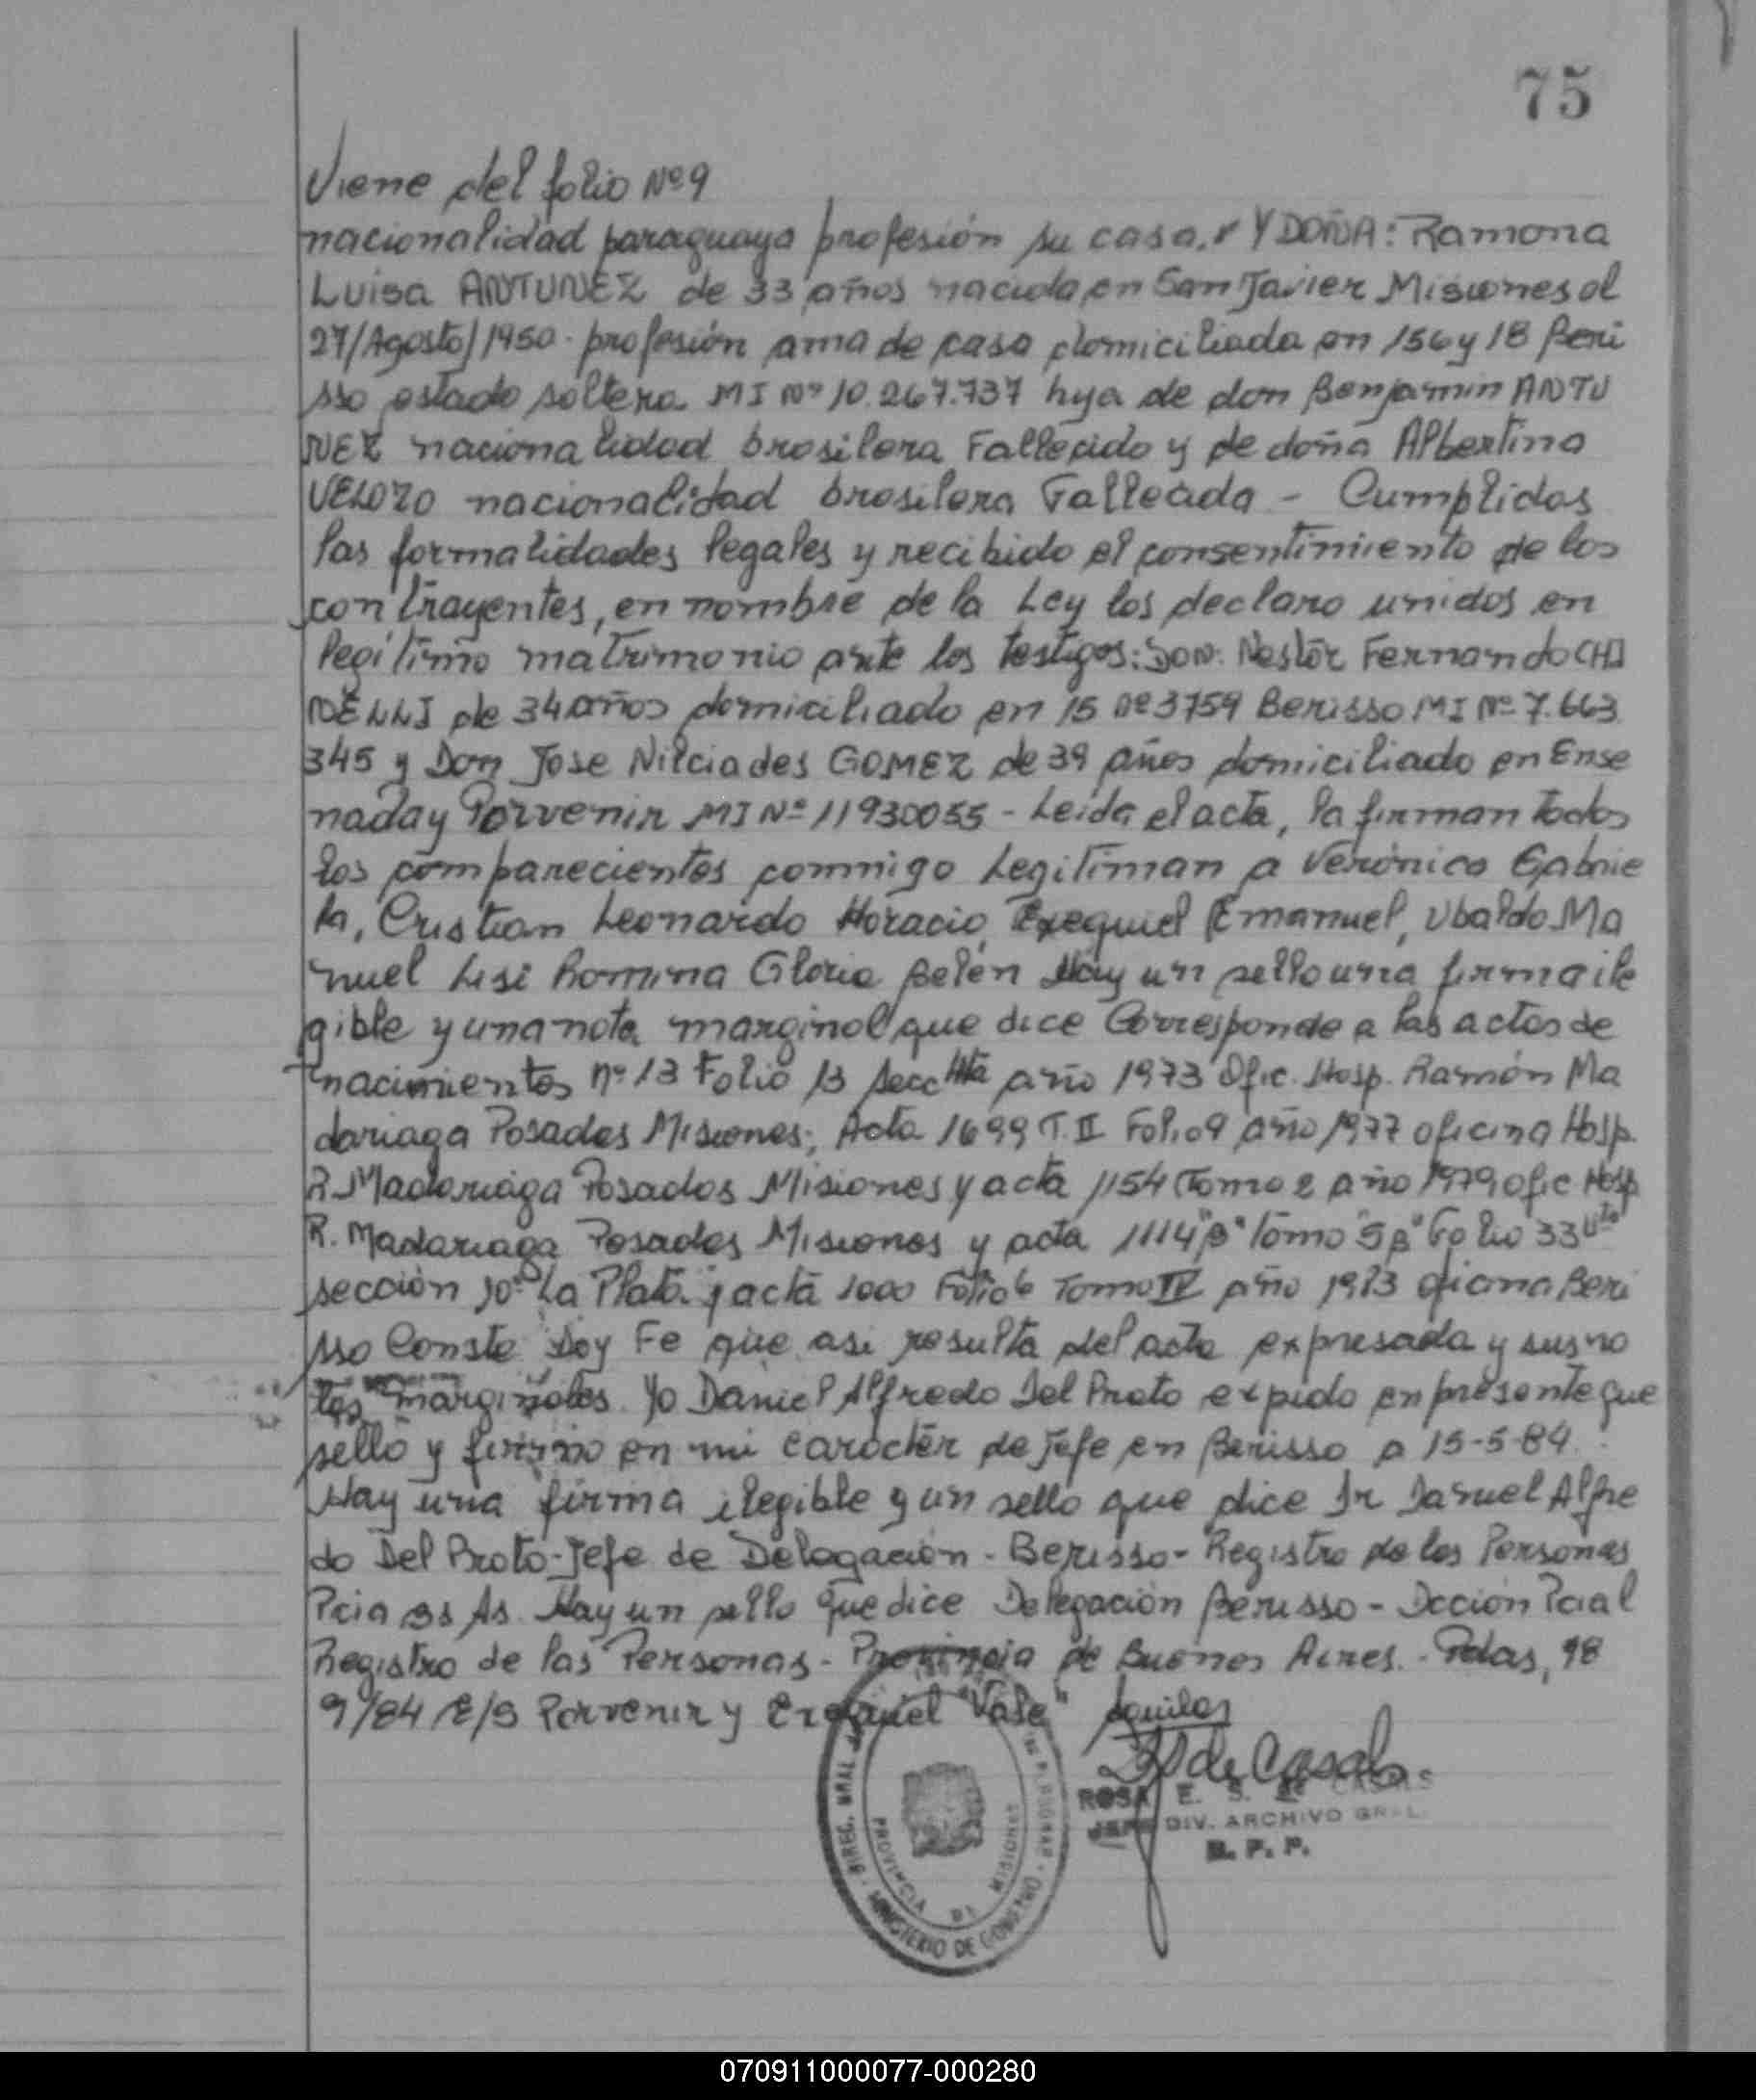 75
Viene del folio Nº9
nacionalidad paraguaya profesión su casa. Y DOÑA: Ramona
Luisa ANTUNEZ de 33 años nacida en San Javier Misiones el
27/Agosto/1950. profesión ama de casa domiciliada en 156 y 18 Beri
sso estado soltera MI Nº 10.267.737 hija de don Benjamin ANTU
NEZ nacionalidad brasilera Fallecido y de doña Albertina
VELOZO nacionalidad brasilera Fallecida - Cumplidas
las formalidades legales y recibido el consentimiento de los
contrayentes, en nombre de la Ley los declaro unidos en
legítimo matrimonio ante los testigos: DON: Nestor Fernando CHI
NELLI de 34 años domiciliado en 15 Nº 3759 Berisso MI Nº 7.663
345 y Don Jose Nilciades GOMEZ de 39 años domiciliado en Ense
nada y Porvenir MI Nº 11930055 - Leída el acta, la firman todos
los comparecientes conmigo Legitiman a Verónica Gabrie
la, Cristian Leonardo Horacio, Exequiel Emanuel, Ubaldo Ma
nuel Romina Gloria Belén Hay un sello una firma ile
gible y una nota marginal que dice Corresponde a las actas de
nacimientos nº 13 Folio 13 Secc año 1973 Ofic. Hosp. Ramón Ma
dariaga Posadas Misiones; Acta 1699 T. II Folio 9 año 1977 oficina Hosp.
R. Madariaga Posadas Misiones y acta 1154 Tomo 2 año 1979 ofic Hosp
R. Madariaga Posadas Misiones y acta 1114 "B" Tomo "5 B" Folio 33
sección 10ª La Plata y acta 1000 Folio 6 Tomo IV año 1983 oficina Beri
sso Conste Doy Fe que asi resulta del acta expresada y sus no
tas marginales. Yo Daniel Alfredo Del Prato expido en presente que
sello y firmo en mi carácter de jefe en Berisso a 15-5-84.
Hay una firma ilegible y un sello que dice Dr Daniel Alfre
do Del Prato - Jefe de Delegación - Berisso - Registro de las Personas
Pcia Bs As. Hay un sello que dice Delegación Berisso - Dcción Pcial
Registro de las Personas - Provincia de Buenos Aires. - Pdas, 18
9/84 E/S Porvenir y Exequiel "Vale"
de Casals
ROSA E. S. de CASALS
JEFE DIV. ARCHIVO GRAL.
R. P. P.
PROVINCIA DE MISIONES
MINISTERIO DE GOBIERNO
070911000077-000280